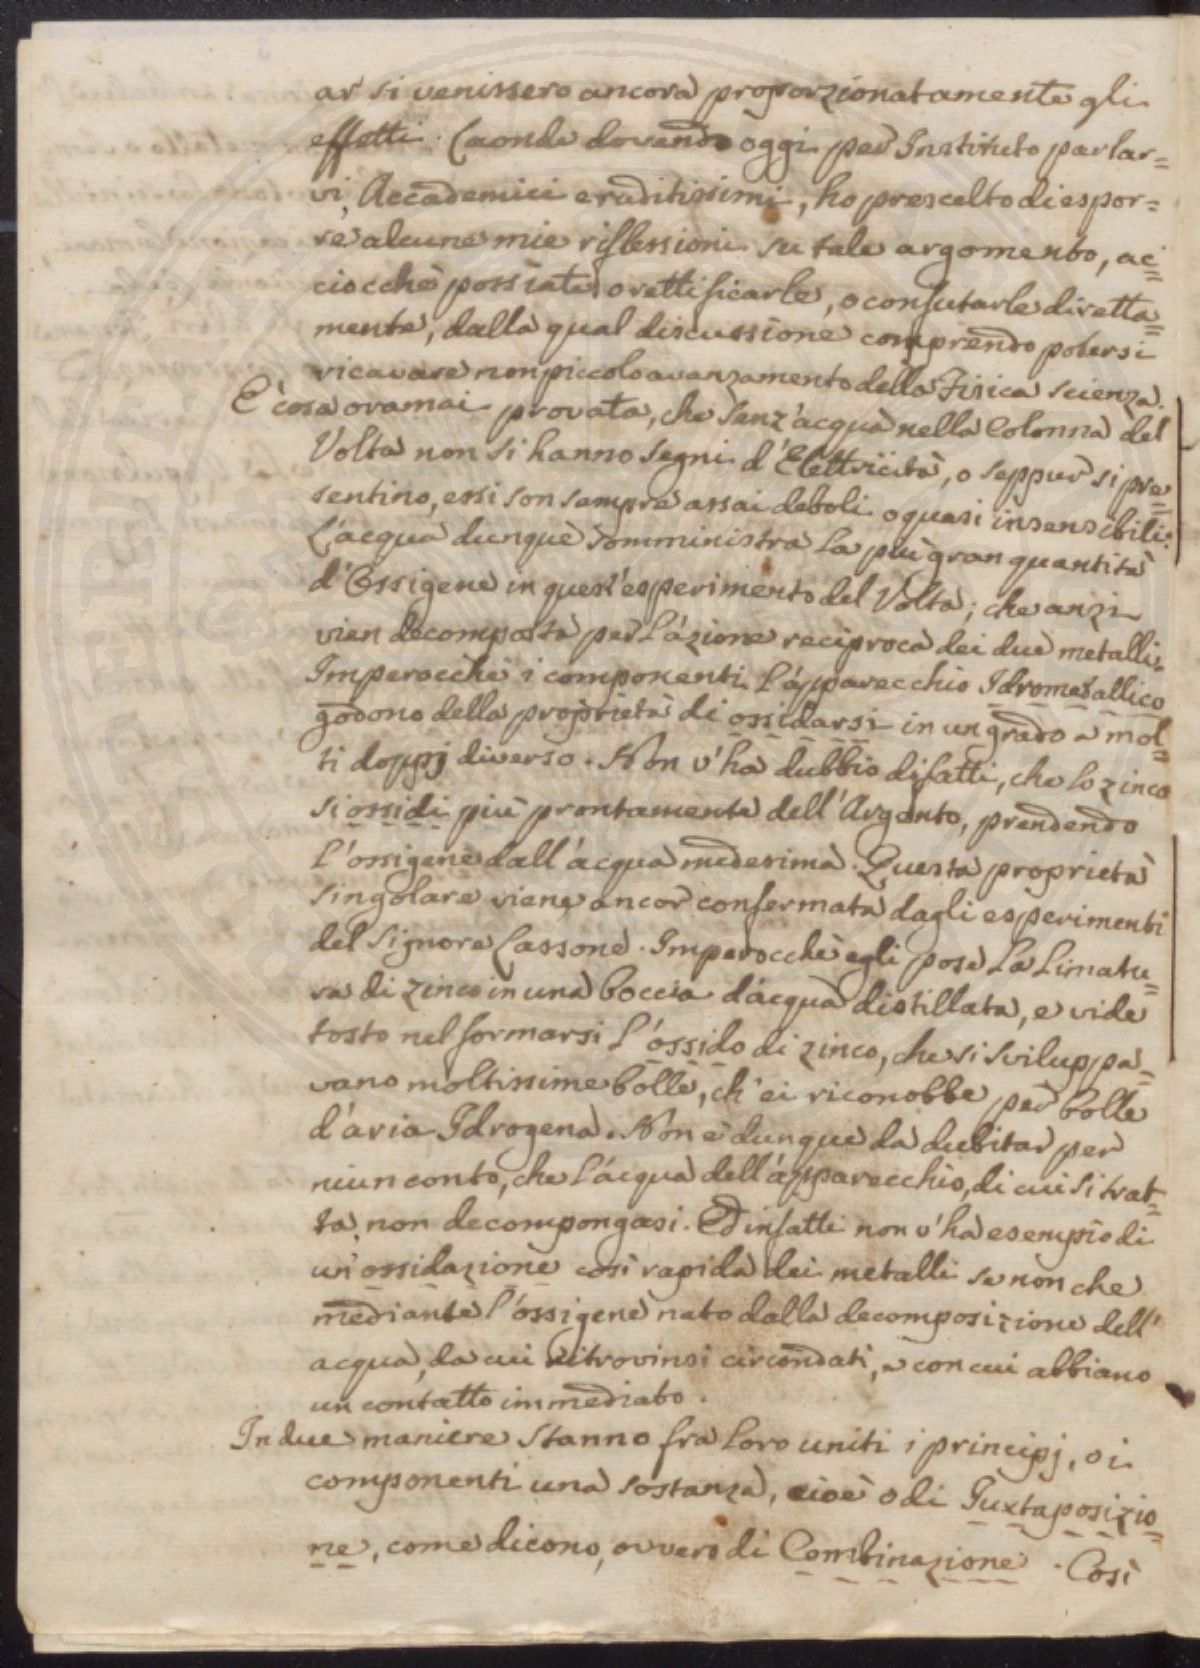 ar si venissero ancora proporzionatamente gli
effetti. Laonde dovendo oggi per Instituto parlar=
vi, Accademici eruditissimi, ho prescelto di espor=
re alcune mie riflessioni su tale argomento, ac=
ciocchè possiate o rettificarle, o confutarle diretta=
mente, dalla qual discussione comprendo potersi
ricavare non piccolo avanzamento della Fisica scienza.
E' cosa oramai provata, che senz'acqua nella Colonna del
Volta non si hanno segni d'Elettricità, o seppur si pre=
sentino, essi son sempre assai deboli o quasi insensibili.
L'acqua dunque somministra la più gran quantità
d'Ossigene in quest'esperimento del Volta; che anzi
vien decomposta per l'azione reciproca dei due metalli.
Imperocchè i componenti l'apparecchio Idrometallico
godono della proprietà di ossidarsi in un grado a mol=
ti doppj diverso. Non v'ha dubbio difatti, che lo zinco
si ossidi più prontamente dell'Argento, prendendo
l'ossigene dall'acqua medesima. Questa proprietà
singolare viene ancor confermata dagli esperimenti
del Signore Lassone. Imperocchè egli pose la limatu=
ra di zinco in una boccia d'acqua distillata, e vide
tosto nel formarsi l'ossido di zinco, che si sviluppa=
vano moltissime bolle, ch'ei riconobbe per bolle
d'aria Idrogena. Non è dunque da dubitar per
niun conto, che l'acqua dell'apparecchio, di cui si trat=
ta, non decompongasi. Ed infatti non v'ha esempio di
un'ossidazione così rapida dei metalli se non che
mediante l'ossigene nato dalla decomposizione dell'
acqua, da cui ritrovinsi circondati, e con cui abbiano
un contatto immediato.
In due maniere stanno fra loro uniti i principj, o i
componenti una sostanza, cioè o di Juxtaposizio=
ne, come dicono, ovvero di Combinazione. Così